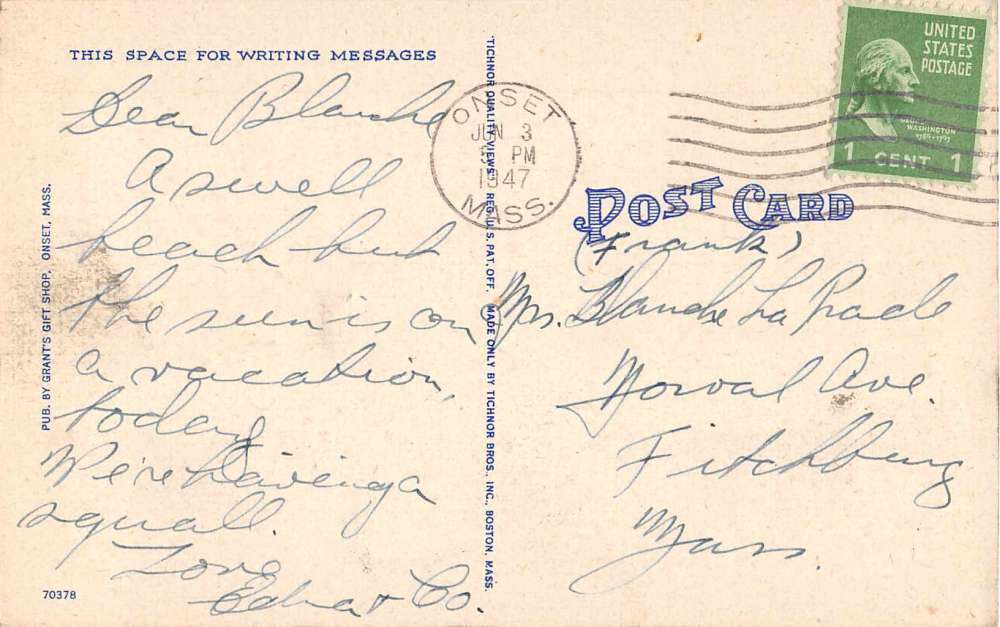 THIS SPACE FOR WRITING MESSAGES
Dear Blanche
A swell
beach but
the sun is on
a vacation,
today
We're having a
squall.
Love
Edna & Co.
70378
PUB. BY GRANT'S GIFT SHOP, ONSET, MASS.
"TICHNOR QUALITY VIEWS," REG. U. S. PAT. OFF. MADE ONLY BY TICHNOR BROS., INC., BOSTON, MASS.
ONSET
JUN 3
PM
1947
MASS.
UNITED
STATES
POSTAGE
GEORGE
WASHINGTON
1789-1797
1 CENT 1
POST CARD
(Frank)
Mrs. Blanche La Prade
Norval Ave.
Fitchburg
Mass.